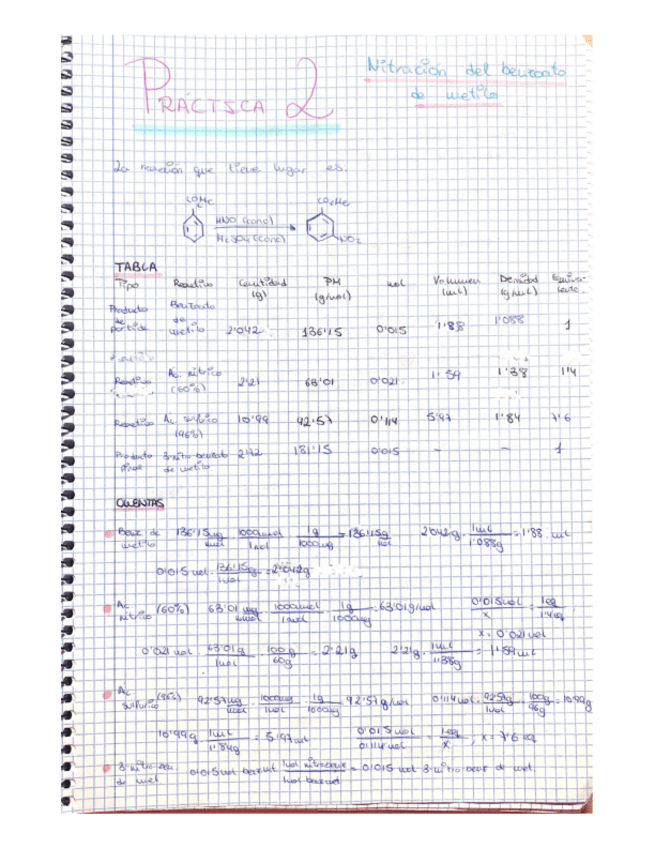 PRÁCTICA 2
Nitración del benzoato
de metilo
La reacción que tiene lugar es.
CO₂Me
CO₂Me
HNO (conc)
H₂SO₄ (conc)
NO₂
TABLA
Tipo Reactivo Cantidad (g) PM (g/mol) mol Volumen (mL) Densidad (g/mL)
Producto de partida Benzoato de metilo 2'042 136'15 0'015 1'88 1'088 1
Reactivo Ac. nítrico (60%) 2'21 63'01 0'021 1'59 1'38 1'4
Reactivo Ac sulfúrico (96%) 10'99 92'57 0'114 5'97 1'84 7'6
Producto 3-nitro benzoato de metilo 2'72 181'15 0'015 - - 1
CUENTAS
Benz de metilo 136'15 1000mmol 1mol 1g 1000mg = 136'15g mol 2'042g · 1mL 1'088g = 1'88 mL
0'015 mol · 136'15g 1mol = 2'042g
Ac nítrico (60%) 63'01 mg mmol 1000mmol 1mol 1g 1000mg = 63'01g/mol 0'015mol x = 1eq 1'4eq
x = 0'021 mol
0'021 mol · 63'01g 1mol · 100g 60g = 2'21g 2'21g · 1mL 1'38g = 1'59mL
Ac sulfúrico (96%) 92'57mg 1g 1000mg 92'57g/mol 0'114mol · 92'57g 1mol · 100g 96g = 10'99g
10'99g · 1mL 1'84g = 5'97mL 0'015mol 0'114mol = 1eq x , x = 7'6 eq
0'015 mol = 0'015 mol 3-nitro benz de met.